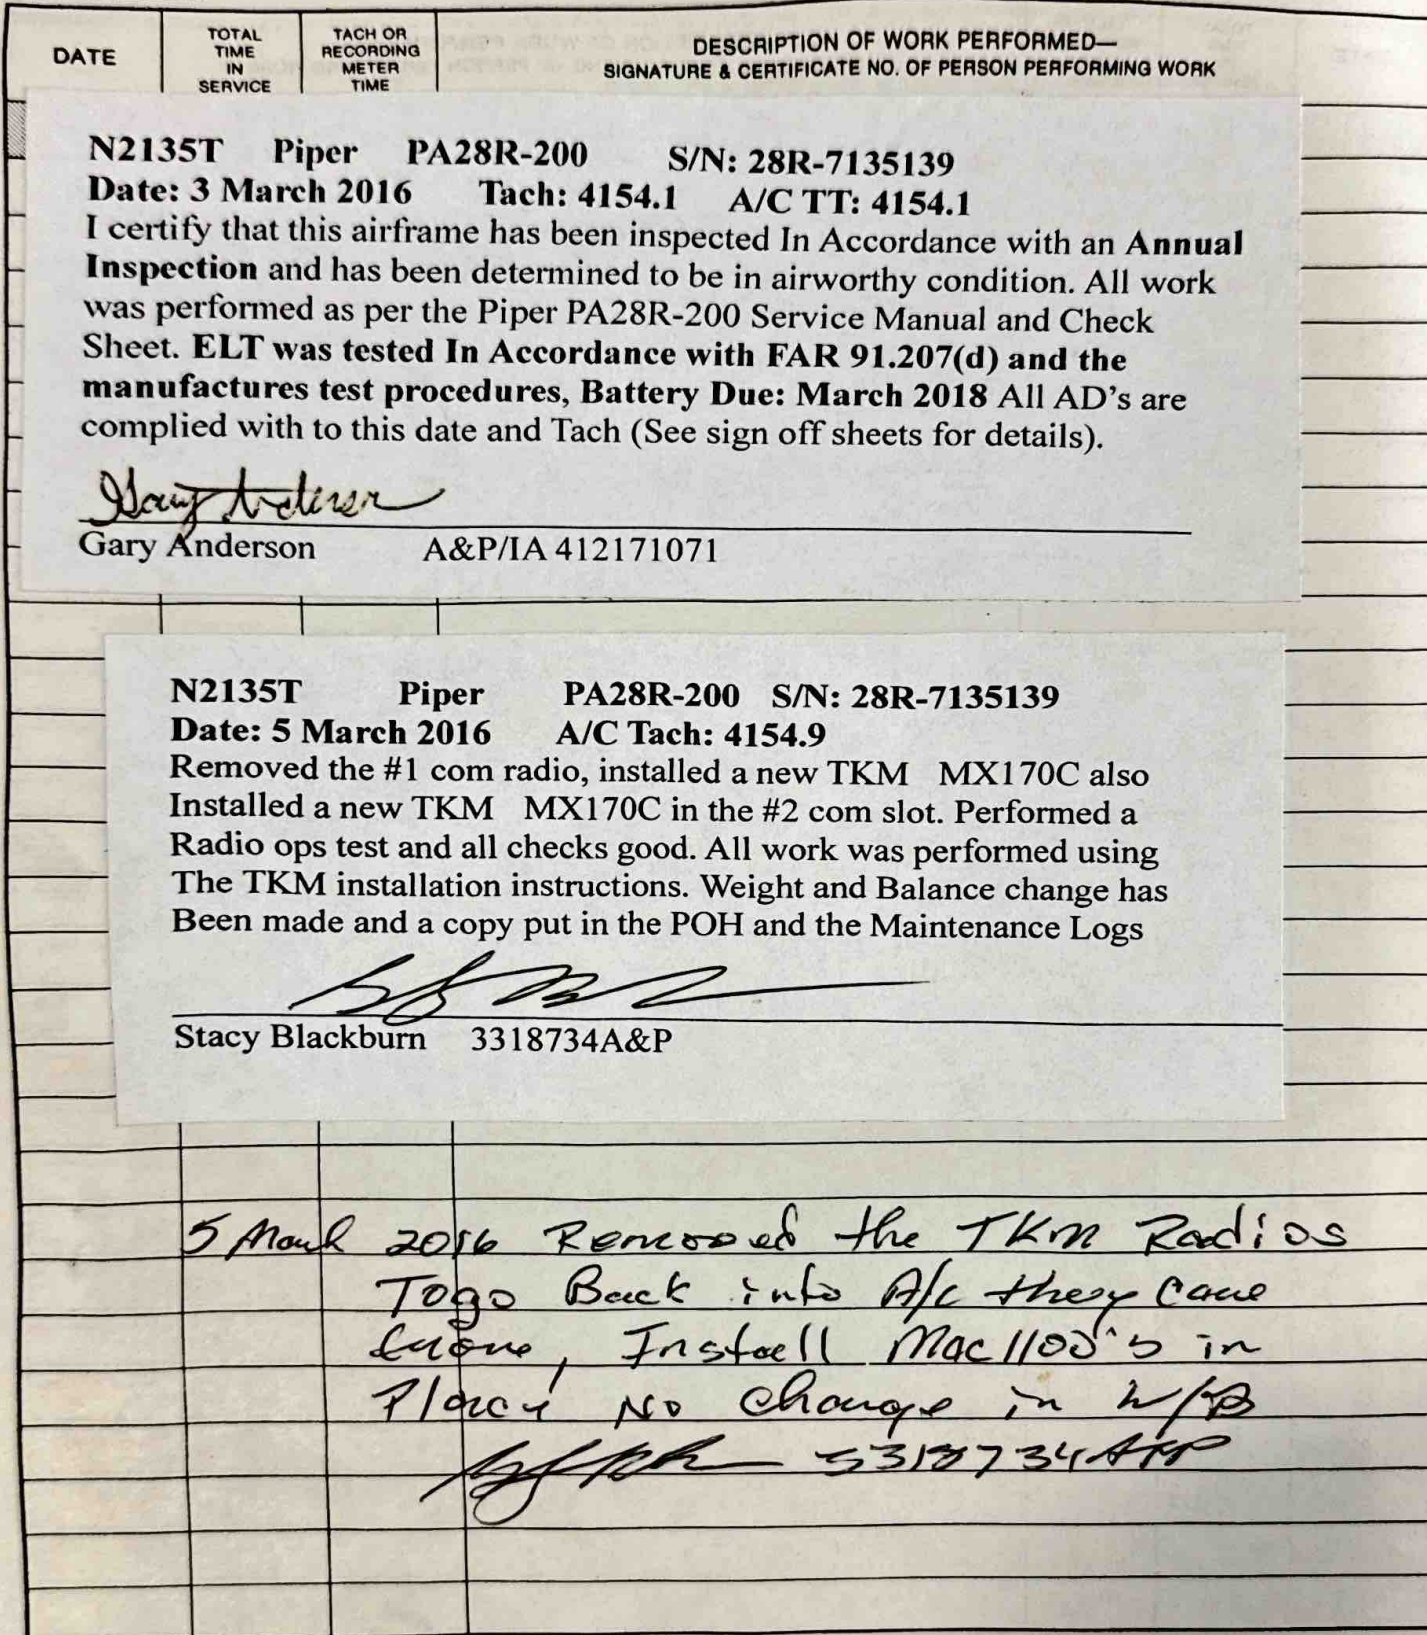 DATE
TOTAL TIME IN SERVICE
TACH OR RECORDING METER TIME
DESCRIPTION OF WORK PERFORMED—
SIGNATURE & CERTIFICATE NO. OF PERSON PERFORMING WORK
N2135T Piper PA28R-200 S/N: 28R-7135139
Date: 3 March 2016 Tach: 4154.1 A/C TT: 4154.1
I certify that this airframe has been inspected In Accordance with an Annual
Inspection and has been determined to be in airworthy condition. All work
was performed as per the Piper PA28R-200 Service Manual and Check
Sheet. ELT was tested In Accordance with FAR 91.207(d) and the
manufactures test procedures, Battery Due: March 2018 All AD's are
complied with to this date and Tach (See sign off sheets for details).
Gary Anderson
Gary Anderson A&P/IA 412171071
N2135T Piper PA28R-200 S/N: 28R-7135139
Date: 5 March 2016 A/C Tach: 4154.9
Removed the #1 com radio, installed a new TKM MX170C also
Installed a new TKM MX170C in the #2 com slot. Performed a
Radio ops test and all checks good. All work was performed using
The TKM installation instructions. Weight and Balance change has
Been made and a copy put in the POH and the Maintenance Logs
Stacy Blackburn 3318734A&P
5 March 2016 Removed the TKM Radios
To go Back into A/C they came
, Install Mac 1100's in
Place No Change in W/B
3318734 A&P